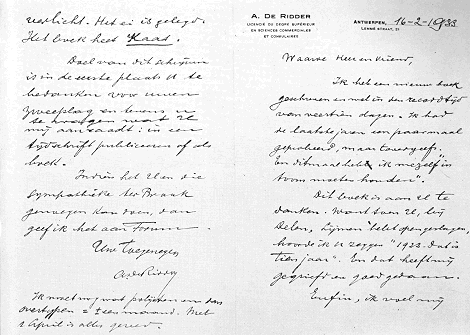 A. DE RIDDER
LICENCIÉ DU DEGRÉ SUPÉRIEUR
EN SCIENCES COMMERCIALES
ET CONSULAIRES
ANTWERPEN, 16-2-1933
LEMMÉ STRAAT, 21
Waarde Heer en Vriend,
Ik heb een nieuw boek
geschreven en wel in den recordtijd
van veertien dagen. Ik had
de laatste jaren een paar maal
geprobeerd, maar tevergeefs.
En ditmaal heb ik mezelf "in
toom moeten houden".
Dit boek is aan U te
danken. Want toen U, bij
Delen, "Lijmen" hebt opengeslagen,
hoorde ik U zeggen "1923. Dat is
tien jaar". En dat heeft mij
gegriefd en goed gedaan.
Enfin, ik voel mij
verlicht. Het ei is gelegd.
Het boek heet Kaas.
Doel van dit schrijven
is in de eerste plaats U te
bedanken voor uwen
zweepslag en tevens U
te vragen wat U
mij aanraadt : in een
tijdschrift publiceeren of als
boek.
Indien het U en die
sympathieke ter Braak
genoegen kan doen, dan
geef ik het aan Forum
Uw toegenegen
A. de Ridder
Ik moet nog wat polijsten en dan
overtypen = ± een maand. Met
1 April is alles gereed.